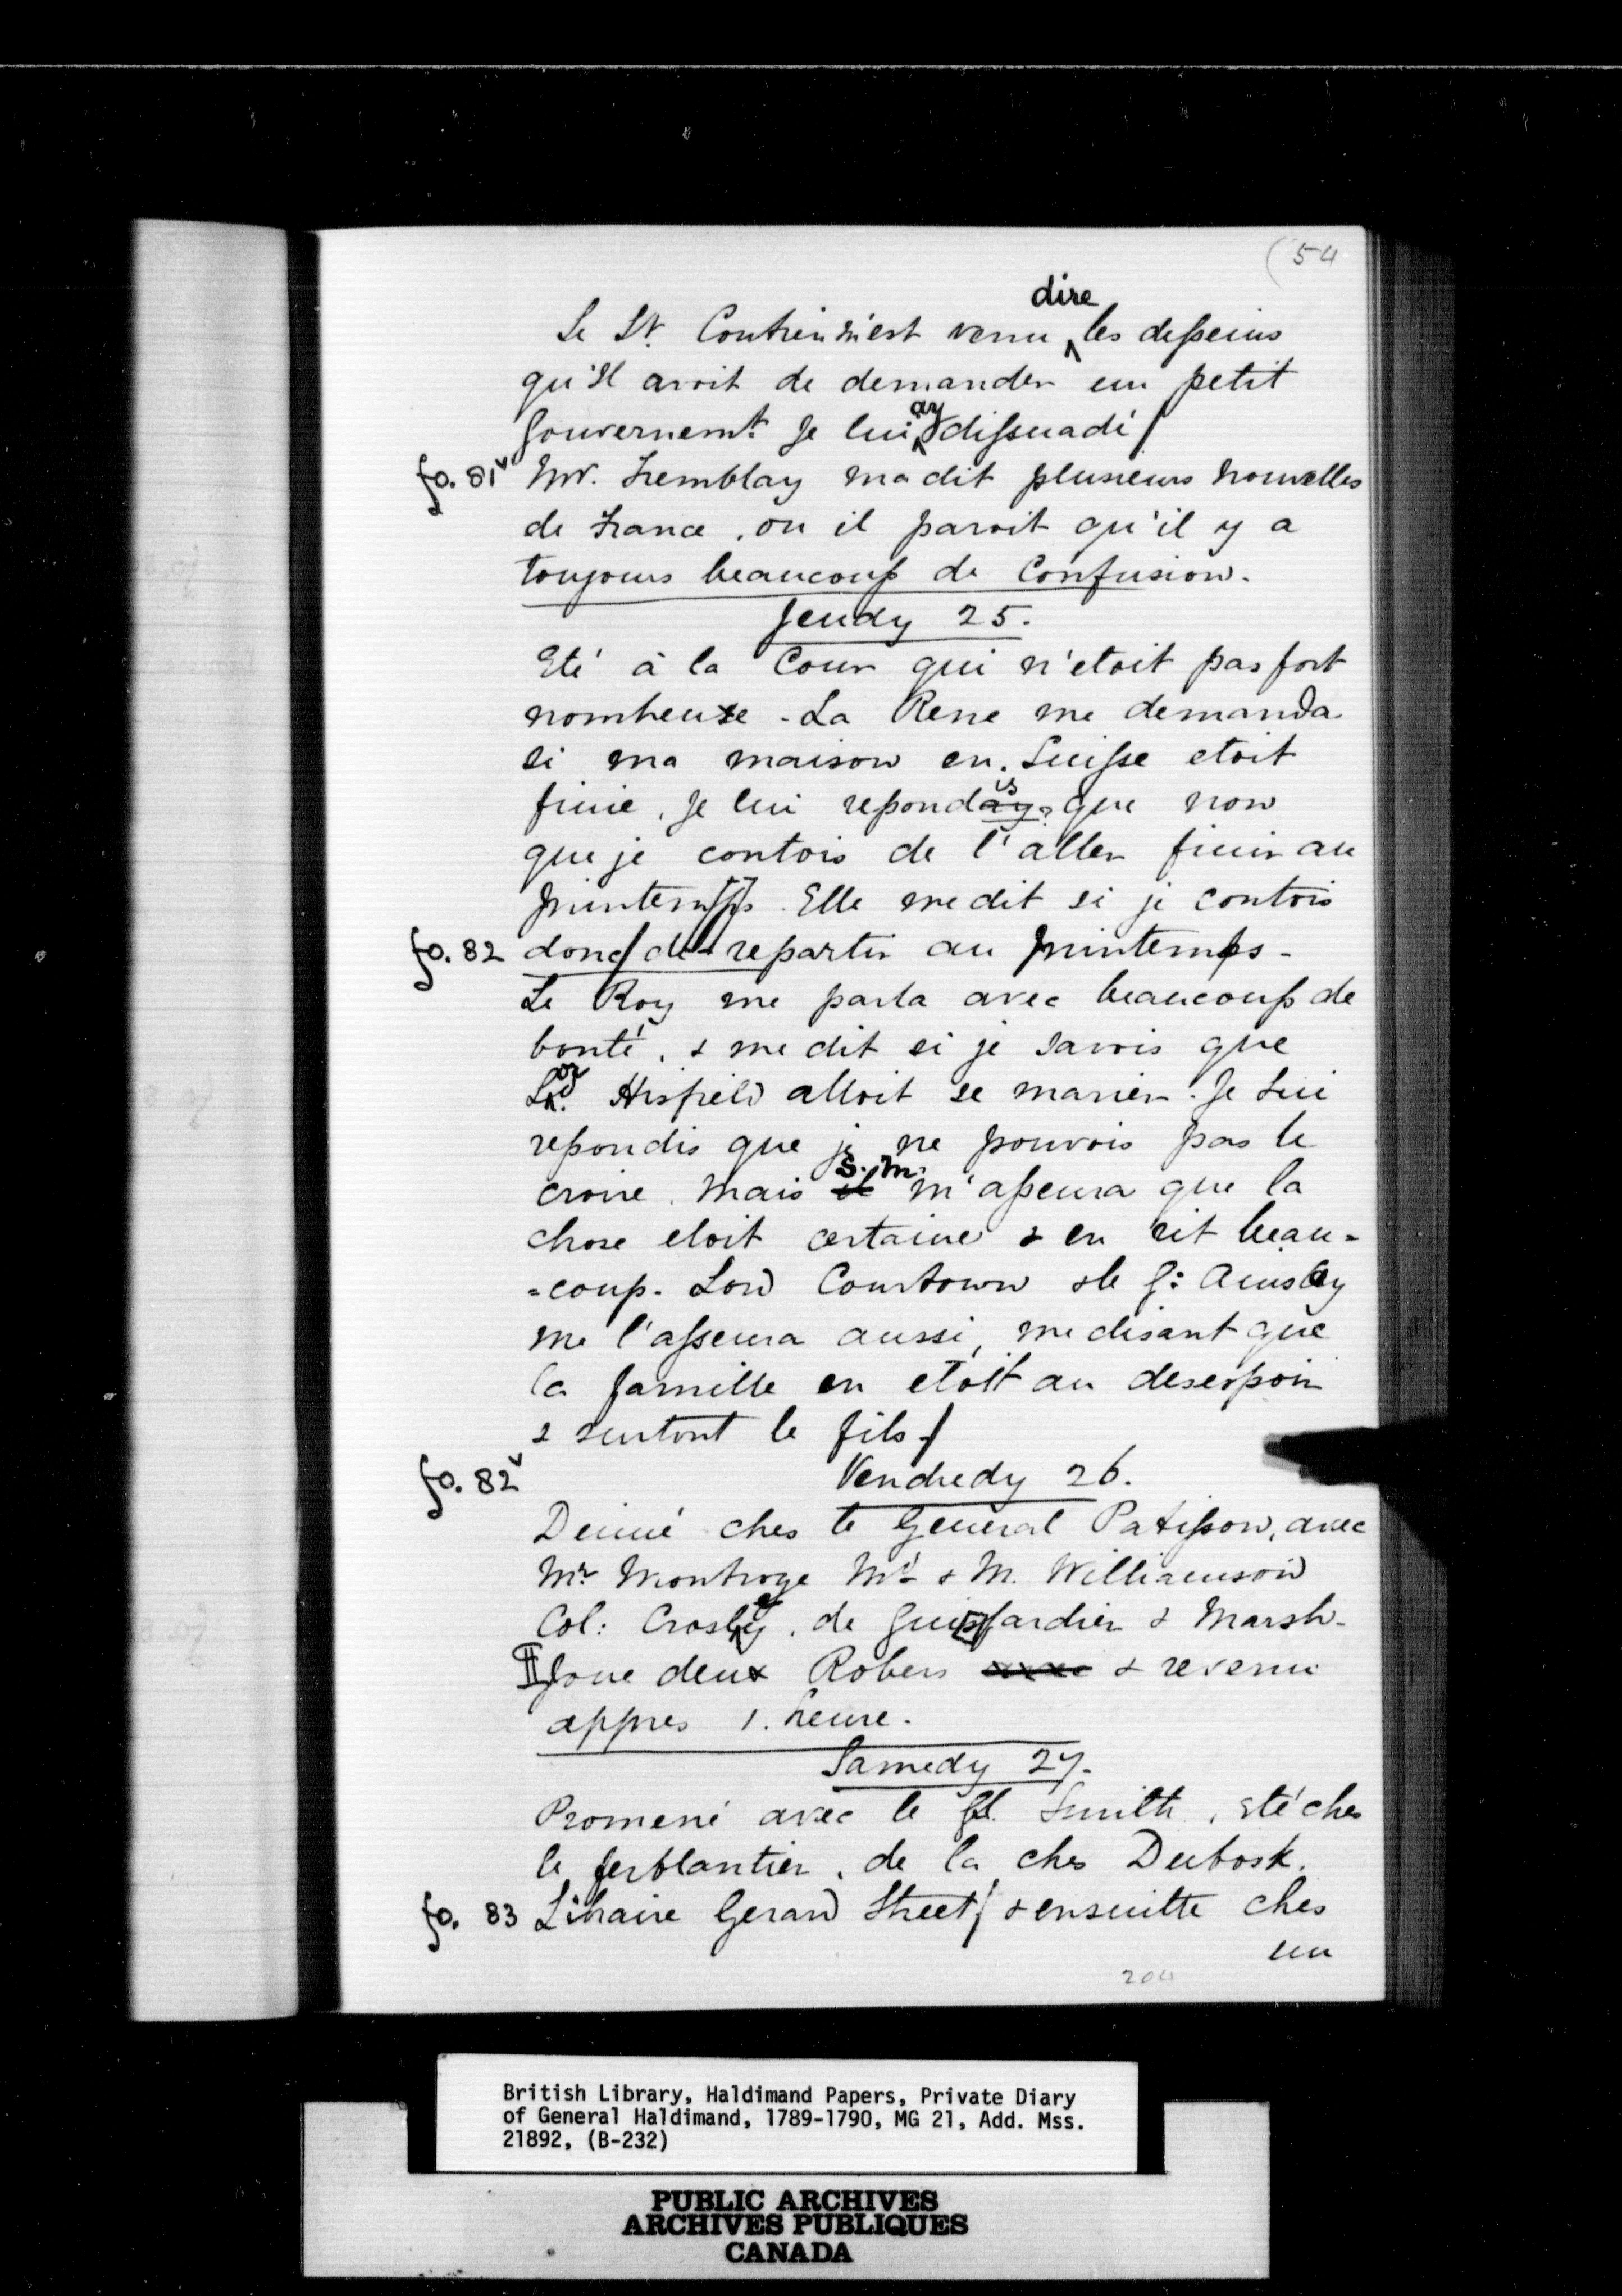 (54
dire
Le Sr. Contrien m'est venu ^ les desseins
qu'Il avoit de demander un petit
Gouvernemt. Je lui ^ay dissuadé /
fo. 81v Mr. Tremblay ma dit plusieurs nouvelles
de France, ou il paroit qu'il y a
toujours beaucoup de Confusion.
Jeudy 25.
Eté à la Cour qui n'etoit pas fort
nombeuse. La Rene me demanda
si ma maison en Suisse etoit
finie. Je lui repondis que non
que je contois de l'aller finir au
printemps. Elle me dit si je contois
fo. 82 donc / de repartir au printemps.
Le Roy me parla avec beaucoup de
bonté, & me dit si je savois que
Lord Hisfield alloit se marier. Je Lui
repondis que je ne pouvois pas le
croire. Mais il S. M. m'asseura que la
chose etoit certaine & en rit beau=
=coup. Lord Courtown & le G: Ainsley
me l'asseura aussi, me disant que
la famille en etoit au desespoir
& surtout le fils /
fo. 82v
Vendredy 26.
Deinné ches le General Patisson, avec
Mr. Montroge Md & M. Williamson
Col: Crosbey, de Guiffardier & Marsh.
Joue deux Robers & revenu
appres 1. heure.
Samedy 27.
Promené avec le Gl. Smith, eté ches
le ferblantier, de la ches Dubosk.
fo. 83 Libraire Gerard Street / & ensuitte ches
un
204
British Library, Haldimand Papers, Private Diary
of General Haldimand, 1789-1790, MG 21, Add. Mss.
21892, (B-232)
PUBLIC ARCHIVES
ARCHIVES PUBLIQUES
CANADA